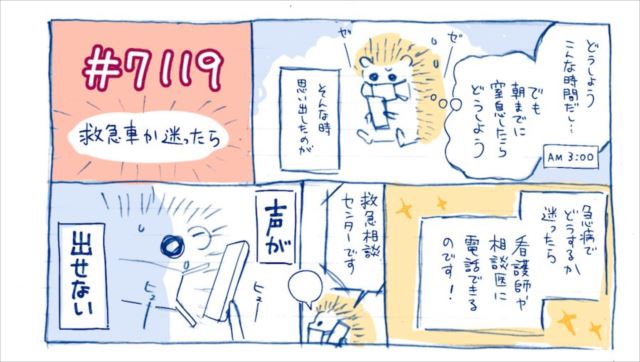 どうしよう
こんな時間だし…
でも
朝までに
窒息したら
どうしよう
AM 3:00
ゼ
ゼ
そんな時
思い出したのが
#7119
救急車か迷ったら
急病で
どうするか
迷ったら
看護師や
相談医に
電話できる
のです!
救急相談
センターです
声が
出せない
ヒュー
ヒュー